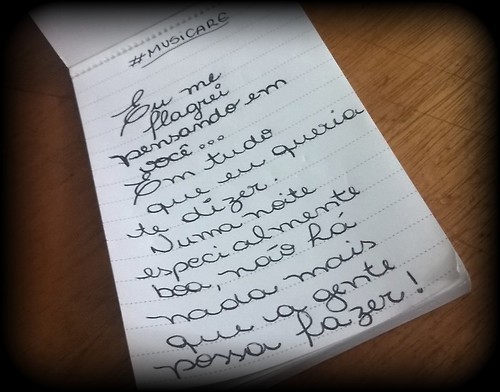 #MUSICARE
Eu me
flagrei
pensando em
você...
Em tudo
que eu queria
te dizer.
Numa noite
especialmente
boa, não há
nada mais
que a gente
possa fazer!